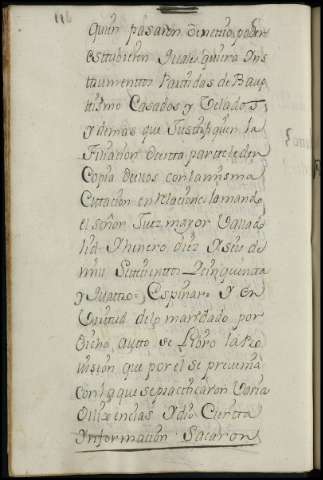 116
quien pasaron o en cuio poder
estubieren quales quiera Yns
taumenttos Parttidas de Bau
ttismo Casados y Velados
y demas que Justtifiquen la
Filiazion de esta partte le den
Copia de ellos con la misma
Cittazion en relazione lo mando
el señor Juez mayor Vallado
lid Y henero diez Y seis de
mill Settezienttos Zinquenta
y quattro = Espinar = Y en
Virttud de lo mandado por
dicho autto se libro la Pro
vision que por el se prevenia
con la que se practticaron Varia
dilixencias Y dio Ciertta
Ynformazion Sacaron